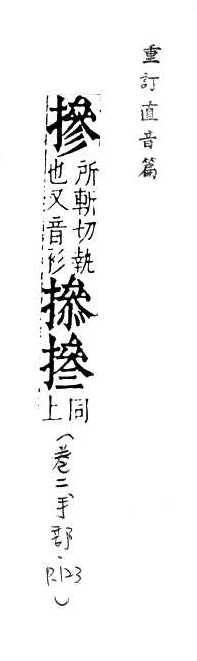 重訂直音篇
摻
所斬切執
也又音衫
同
上
(卷二手部、P.123)